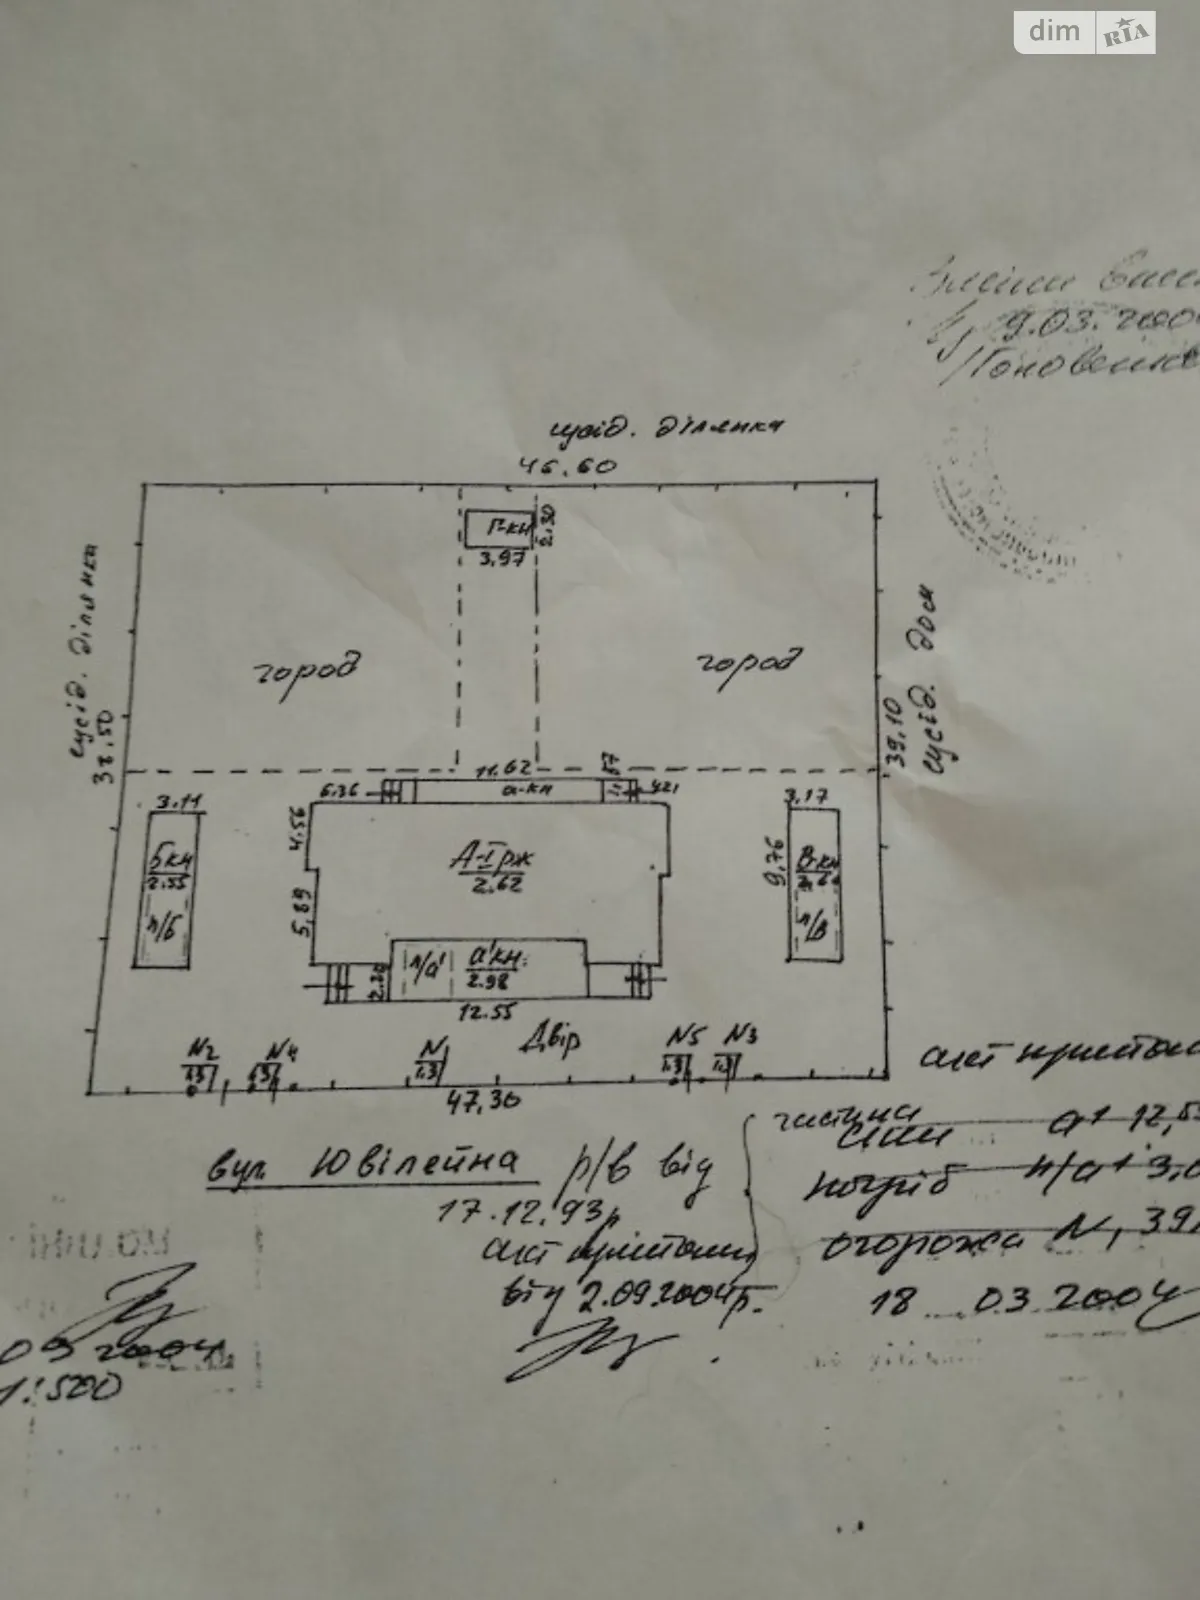 dim RIA
9.03.200
сусід. ділянка
46.60
Г-кн
2.30
3.97
сусід. ділянка
38.50
город
город
39.10
сусід. дом
11.62
6.36
а-кн
4.21
3.11
3.17
4.56
Бкн
2.55
п/Б
А-Ірж
2.62
9.76
В-кн
п/В
5.89
п/а'
а'кн
2.98
2.30
12.55
Двір
N2
1.3
N4
1.3
N1
1.3
N5
1.3
N3
1.3
47,30
акт
частина
вул. Ювілейна р/в від
17.12.93р
сіни а' 12,55
погріб п/а' 3,0
огорожа N1 39
акт
від 2.09.2004р.
18 03 2004
03 2004
1:500